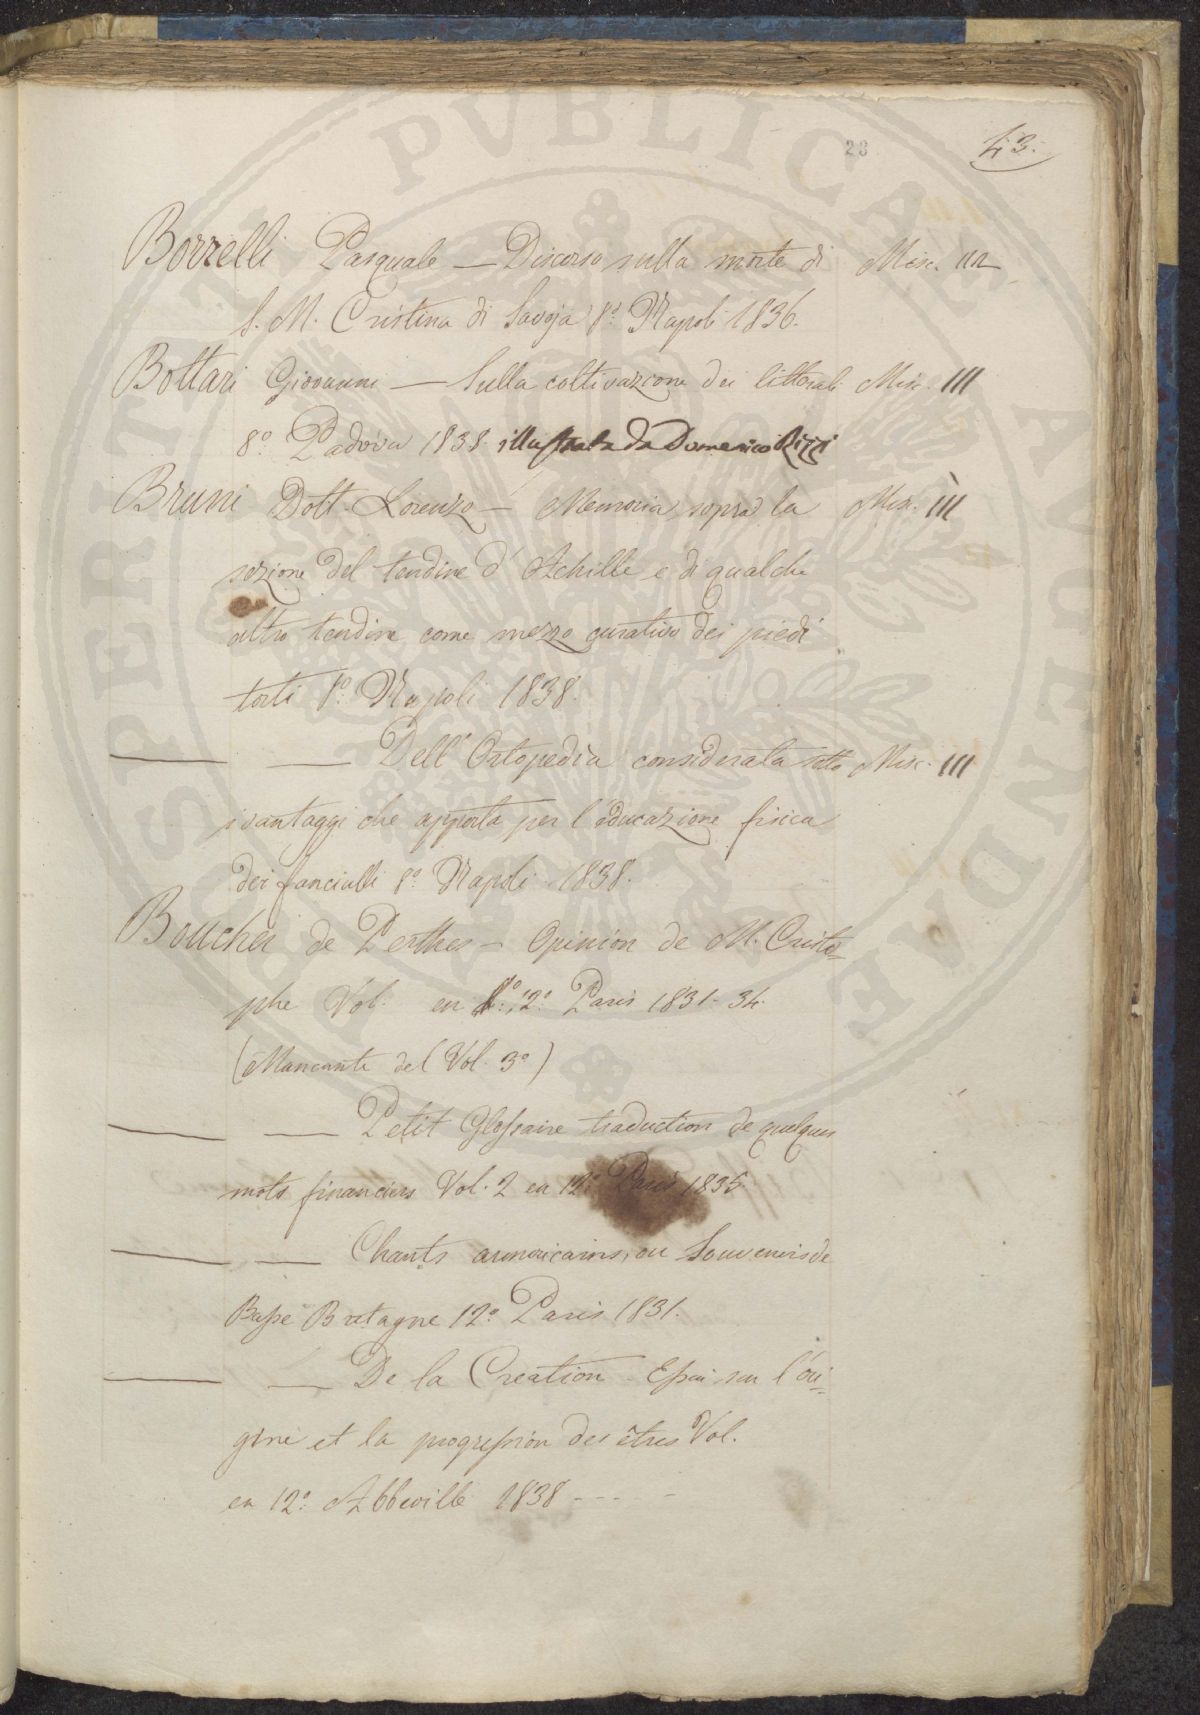 23
43.
Borrelli Pasquale — Discorso sulla morte di Misc.
S. M. Cristina di Savoja 8º Napoli 1836.
Bottari Giovanni — Sulla coltivazione dei littorali Misc. III
8º Padova 1838 illustrata da Domenico Rizzi
Bruni Dott. Lorenzo — Memoria sopra la Mis. III
sezione del tendine d'Achille e di qualche
altro tendine come mezzo curativo dei piedi
torti 8º Napoli 1838.
— — Dell'Ortopedia considerata sotto Misc. III
i vantaggi che apporta per l'educazione fisica
dei fanciulli 8º Napoli 1838.
Boucher de Perthes — Opinion de M. Cristo=
phe Vol. en 12º Paris 1831-34.
(Mancante del Vol. 3º)
— — Petit Glossaire traduction de quelques
mots financiers Vol. 2 en 12º Paris 1835
— — Chants armoricains, ou Souvenirs de
Basse Bretagne 12º Paris 1831.
— — De la Création. Essai sur l'ori=
gine et la progression des êtres Vol.
en 12º Abbeville 1838 - - - -
PROSPERITATI PVBLICAE AVGENDAE